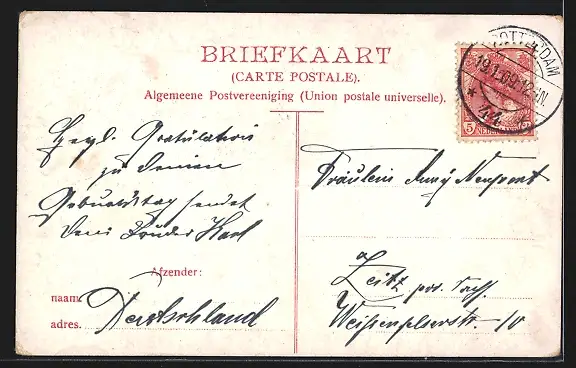 BRIEFKAART
(CARTE POSTALE).
Algemeene Postvereeniging (Union postale universelle).
ROTTERDAM
19.1.09. 12-1N
* 14 *
5
NEDERLAND
Herzl. Gratulation
zu Deinem
Geburtstag sendet
Dein Bruder Karl
Afzender:
naam:
adres.
Deutschland
Fräulein Neupert
Zeitz prov. Sachs.
Weißenfelserstr. 10